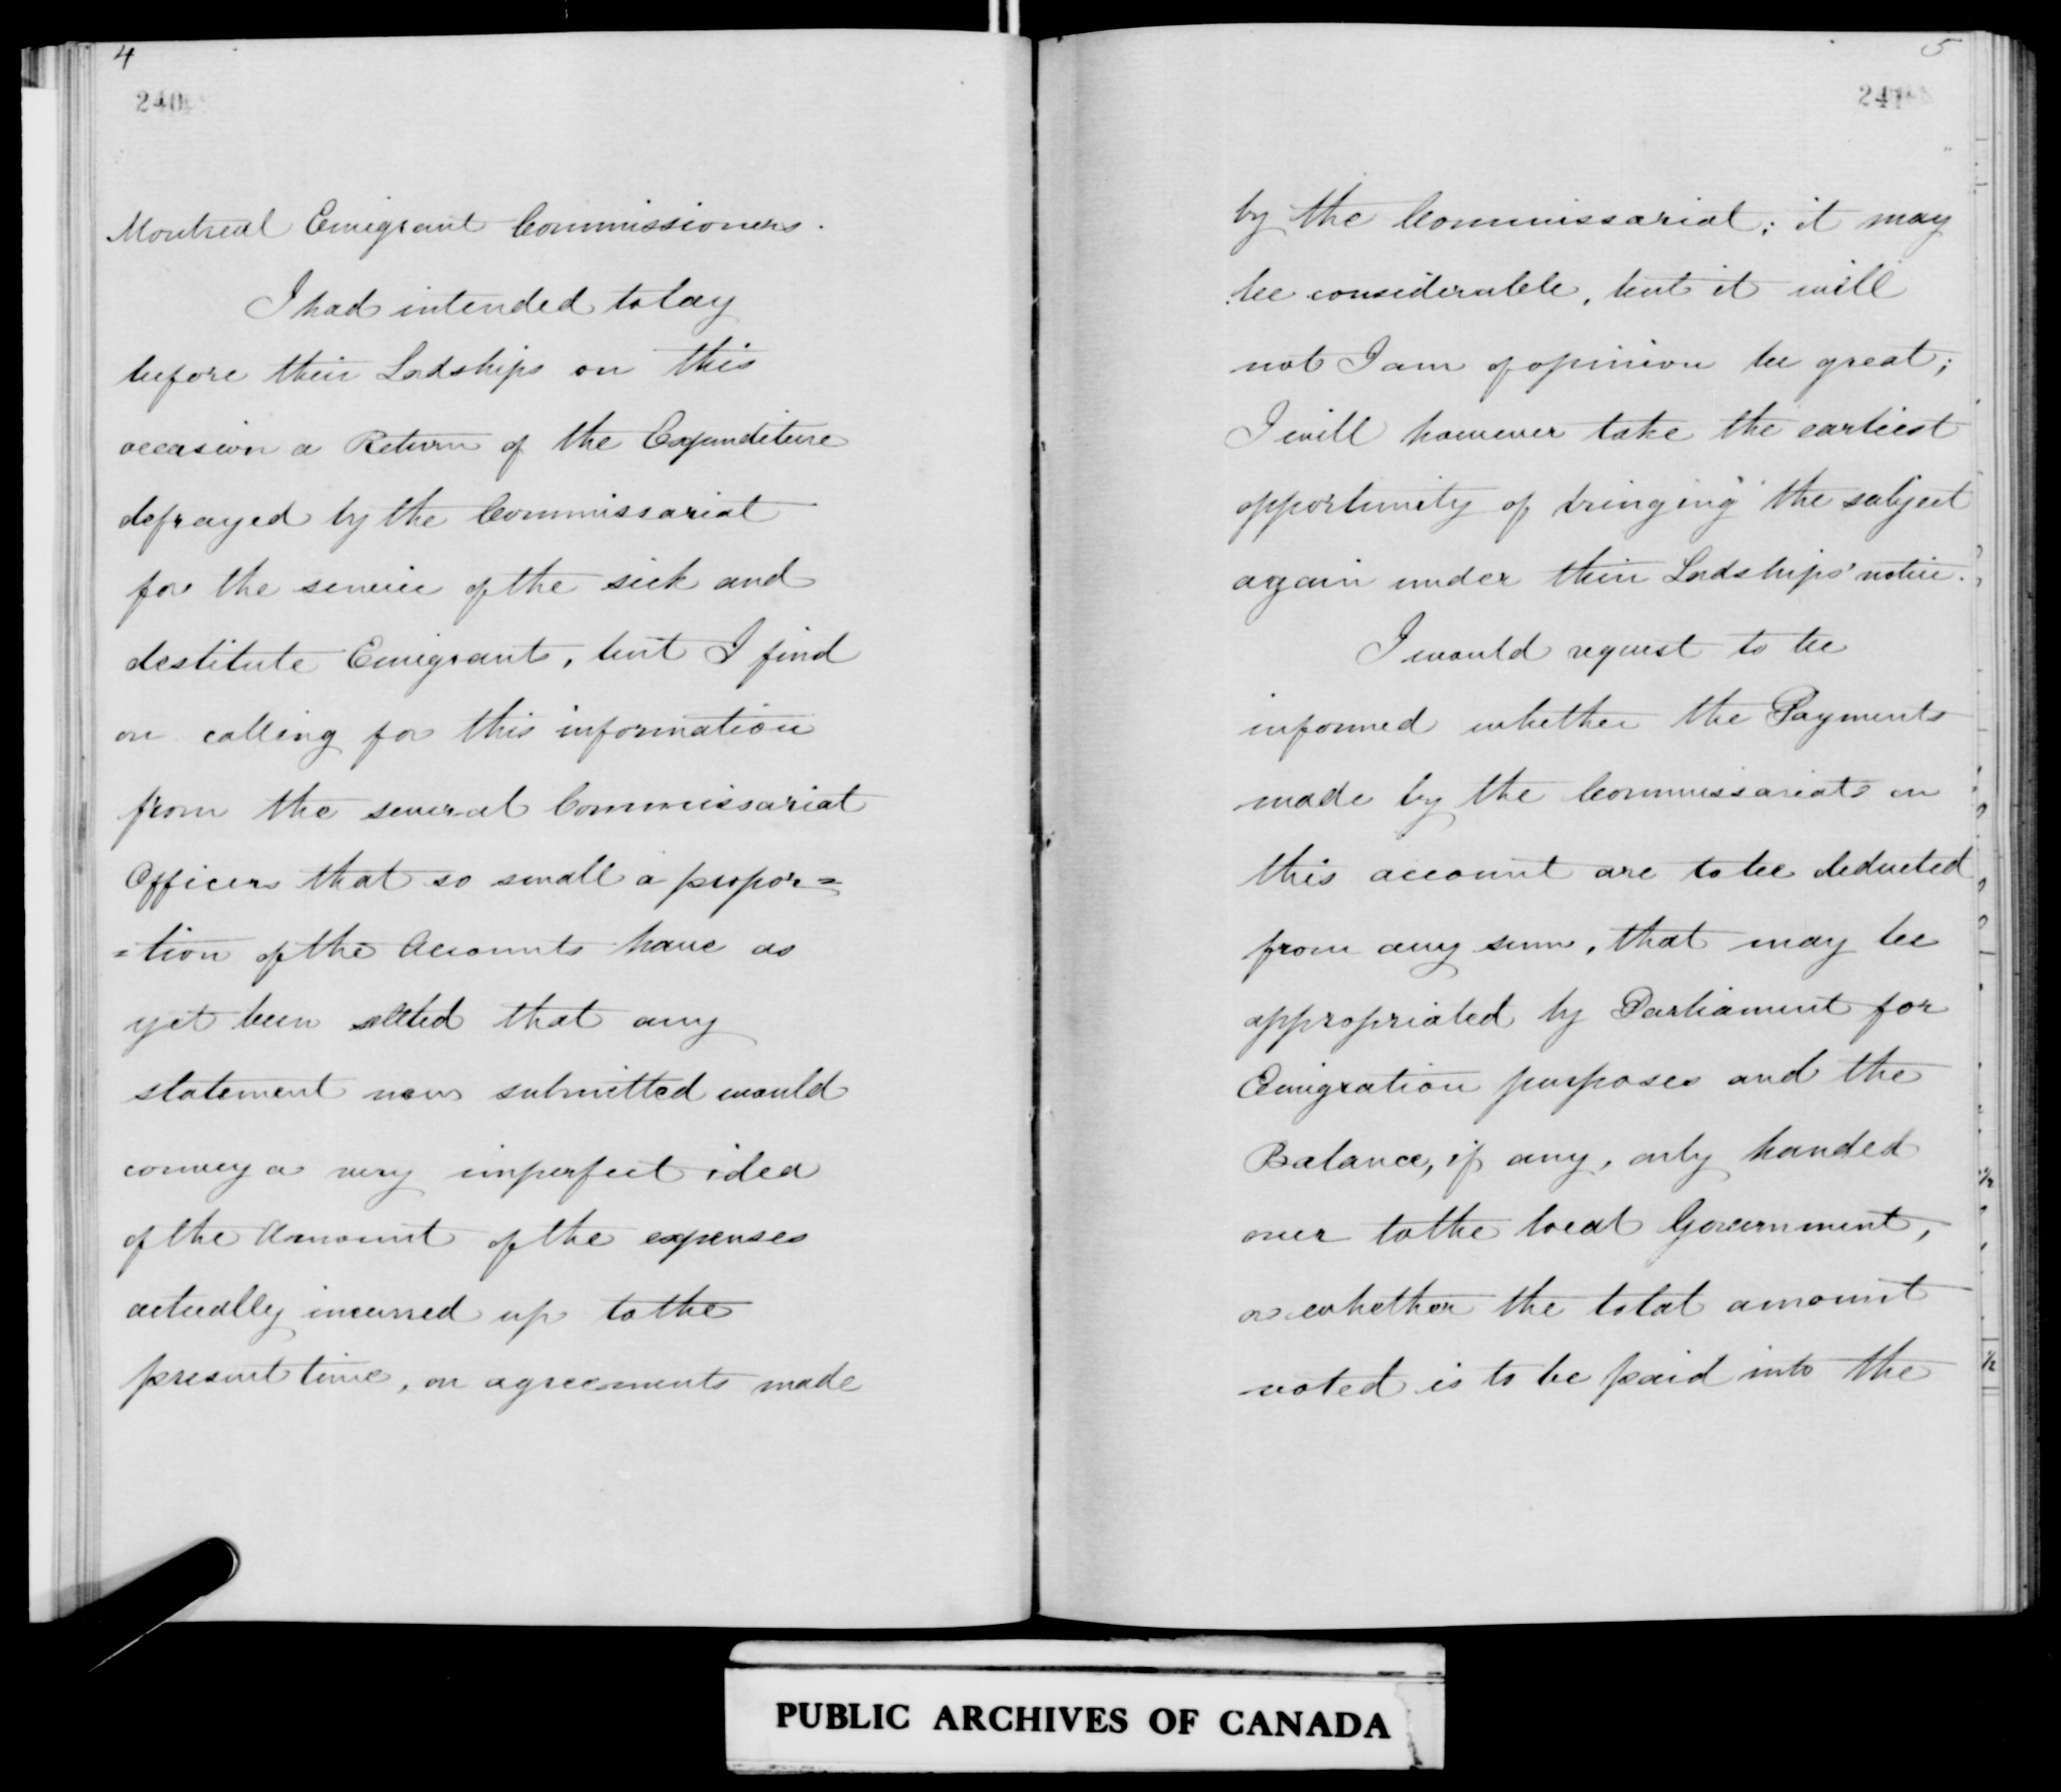 4
240
Montreal Emigrant Commissioners.
I had intended to lay
before their Lordships on this
occasion a Return of the Expenditure
defrayed by the Commissariat
for the service of the sick and
destitute Emigrants, but I find
on calling for this information
from the several Commissariat
Officers that so small a propor=
=tion of the Accounts have as
yet been settled that any
statement now submitted would
convey a very imperfect idea
of the Amount of the expenses
actually incurred up to the
present time, on agreements made
5
241
by the Commissariat; it may
be considerable, but it will
not I am of opinion be great;
I will however take the earliest
opportunity of bringing the subject
again under their Lordships' notice.
I would request to be
informed whether the Payments
made by the Commissariat on
this account are to be deducted
from any sum, that may be
appropriated by Parliament for
Emigration purposes and the
Balance, if any, only handed
over to the local Government,
or whether the total amount
voted is to be paid into the
PUBLIC ARCHIVES OF CANADA